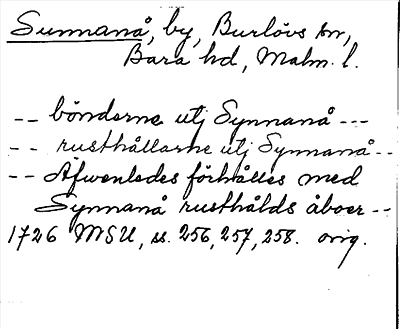 Sunnanå, by, Burlövs sn,
Bara hd, Malm. l.
-- bönderne utj Synnanå ---
-- rusthållarne utj Synnanå --
-- Äfwenledes förhålles med
Synnanå rusthålds åboer --
1726 MSU, ss. 256, 257, 258. orig.